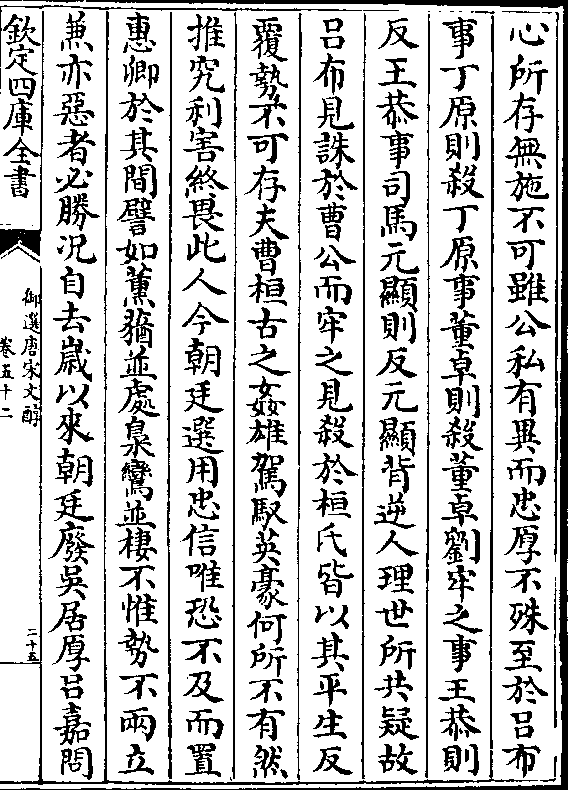 心所存無施不可雖公私有異而忠厚不殊至於吕布
事丁原則殺丁原事董卓則殺董卓劉牢之事王恭則
反王恭事司馬元顯則反元顯背逆人理世所共疑故
吕布見誅於曹公而牢之見殺於桓氏皆以其平生反
覆勢不可存夫曹桓古之姦雄駕馭英豪何所不有然
推究利害終畏此人今朝廷選用忠信唯恐不及而置
惠卿於其間譬如薰蕕並處梟鸞並棲不惟勢不兩立
兼亦惡者必勝况自去嵗以來朝廷廢吳居厚吕嘉問
欽定四庫全書
御選唐宋文醇
卷五十二
二十五